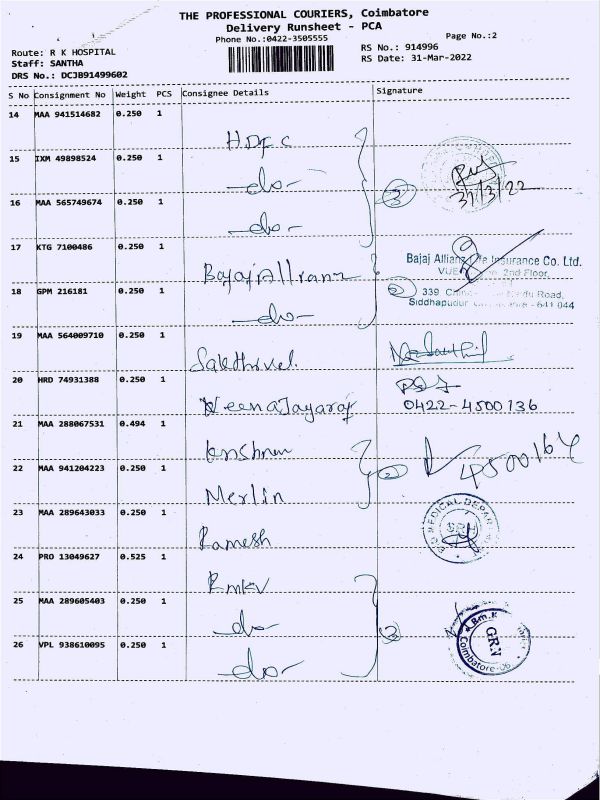 THE PROFESSIONAL COURIERS, Coimbatore
Delivery Runsheet - PCA
Phone No.:0422-3505555
Page No.:2
Route: R K HOSPITAL
RS No.: 914996
Staff: SANTHA
RS Date: 31-Mar-2022
DRS No.: DCJB91499602
S No Consignment No Weight PCS Consignee Details Signature
14 MAA 941514682 0.250 1 HDFC
15 IXM 49898524 0.250 1 -do-
3
31/3/22
16 MAA 565749674 0.250 1 -do-
17 KTG 7100486 0.250 1 Bajaj Allianz
Bajaj Allianz Life Insurance Co. Ltd.
2nd Floor,
18 GPM 216181 0.250 1 -do-
2
339 Road,
Siddhapudur 641 044
19 MAA 564009710 0.250 1 Sakthivel
20 HRD 74931388 0.250 1 Veena Jayaraj
0422-4500136
21 MAA 288067531 0.494 1 Krishnan
2
4500164
22 MAA 941204223 0.250 1 Merlin
23 MAA 289643033 0.250 1 Ramesh
MEDICAL
24 PRO 13049627 0.525 1 Rmkv
25 MAA 289605403 0.250 1 do
3
26 VPL 938610095 0.250 1 do-
GRN
Coimbatore-06